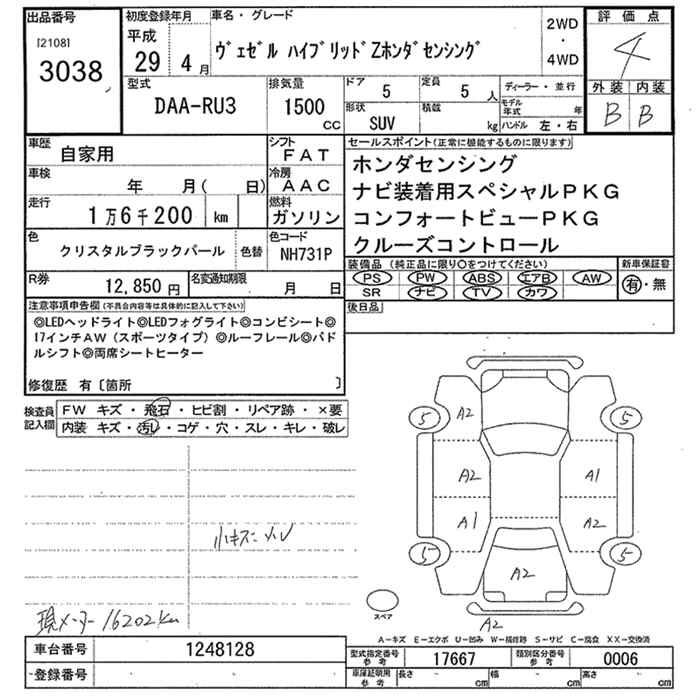 出品番号 初度登録年月 車名・グレード 2WD・4WD 評価点
[2108] 平成
3038 29年 4月 ヴェゼル ハイブリッドZホンダセンシング 4
型式 排気量 ドア 5 定員 5人 ディーラー・並行 外装 内装
DAA-RU3 1500cc 形状 SUV 積載 kg モデル年式 年 B B
ハンドル 左・右
車歴 自家用 シフト FAT セールスポイント(正常に機能するものに限ります)
車検 年 月( 日) 冷房 AAC ホンダセンシング
走行 1万6千200 km 燃料 ガソリン ナビ装着用スペシャルPKG
コンフォートビューPKG
色 クリスタルブラックパール 色替 色コード NH731P クルーズコントロール
R券 12,850円 名変通知期限 月 日 装備品(純正品に限り○をつけてください) 新車保証書
PS PW ABS エアB AW 有・無
SR ナビ TV カワ
注意事項申告欄(不具合内容等は具体的に記入して下さい) 後日品
◎LEDヘッドライト◎LEDフォグライト◎コンビシート◎
17インチAW(スポーツタイプ)◎ルーフレール◎パド
ルシフト◎両席シートヒーター
修復歴 有〔箇所 〕
検査員記入欄 FW キズ・飛石・ヒビ割・リペア跡・×要
内装 キズ・汚レ・コゲ・穴・スレ・キレ・破レ
5 A2 5
A2 A1
A1 A2
小キズ
5 5
A2
現メーター16202km
スペア
A2
A-キズ E-エクボ U-凹み W-補修跡 S-サビ C-腐食 XX-交換済
車台番号 1248128 型式指定番号 参考 17667 類別区分番号 参考 0006
登録番号 車庫証明用 参考 長さ cm 幅 cm 高さ cm